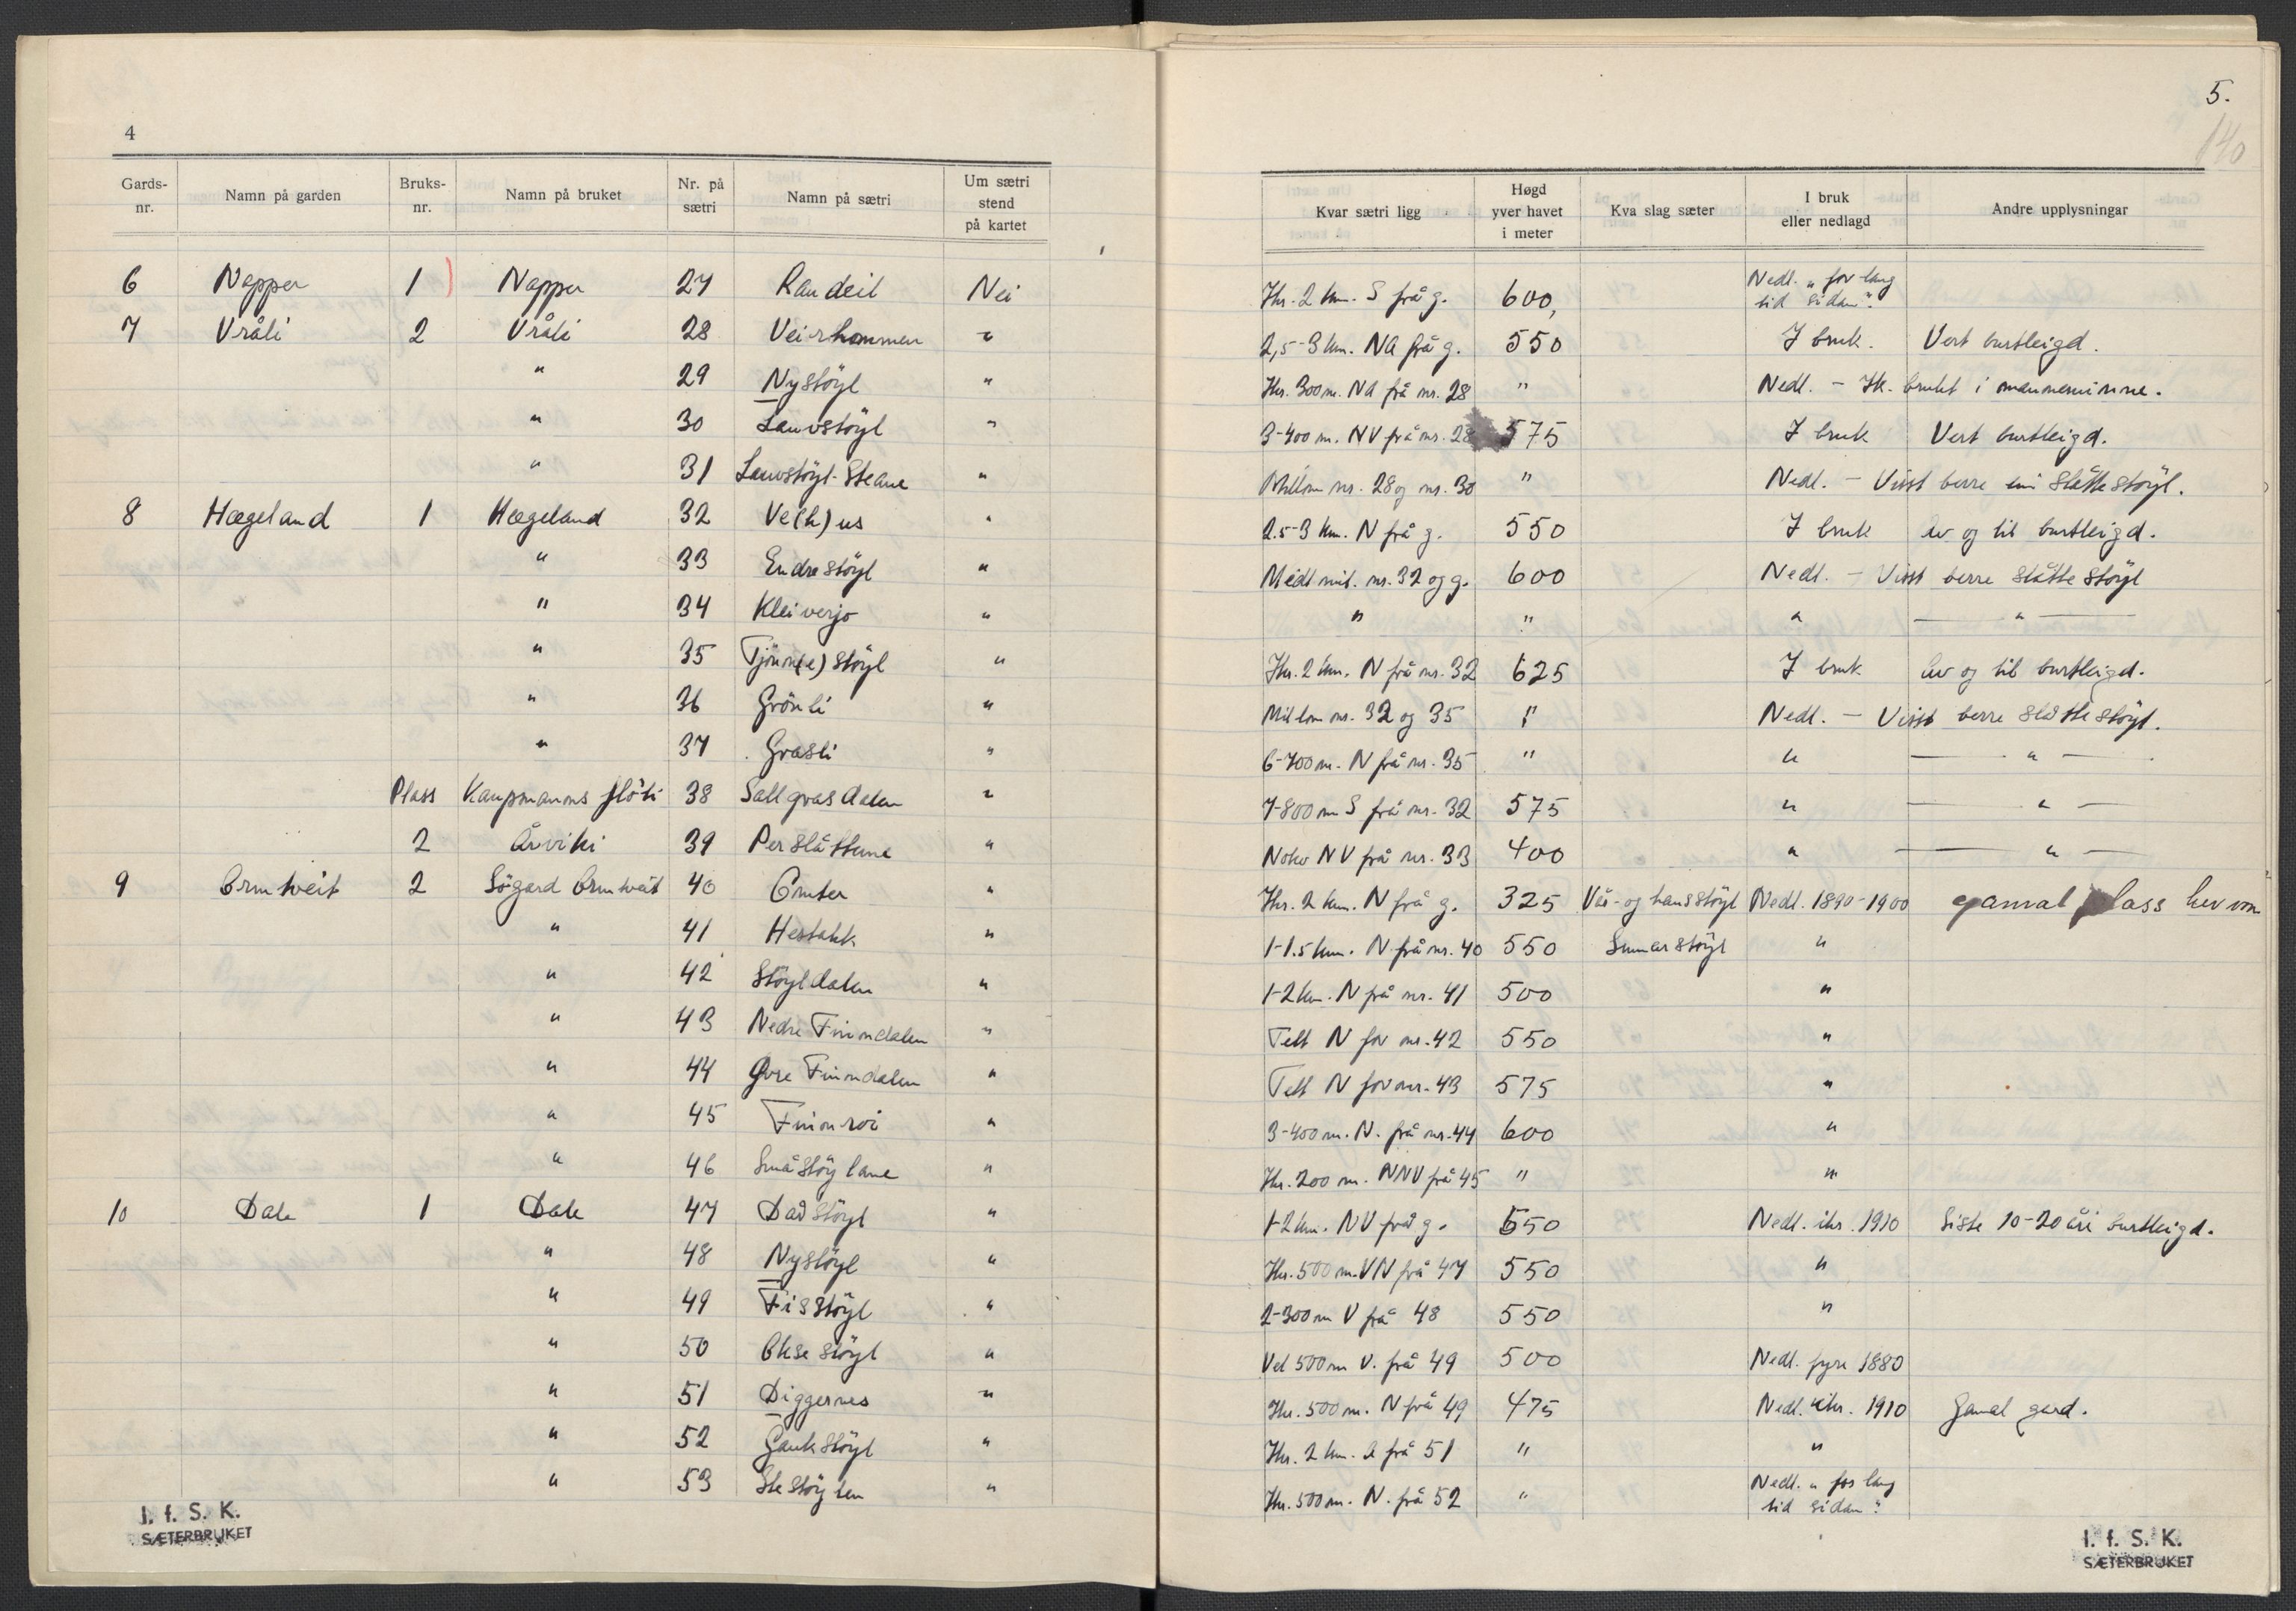 4
Gards-nr. Namn på garden Bruks-nr. Namn på bruket Nr. på sætri Namn på sætri Um sætri stend på kartet
6 Napper 1 ) Napper 27 Raudeil Nei
7 Vråli 2 Vråli 28 Veirhommen "
" 29 Nystöyl "
" 30 Lauvstöyl "
" 31 Lauvstöyl-Steane "
8 Hægeland 1 Hægeland 32 Ve(h)us "
" 33 Endrestöyl "
" 34 Kleiverjo "
" 35 Tjönn(e)stöyl "
" 36 Grönli "
" 37 Grasli "
Plass Kaupmanns 38 Sallgrasdalen "
2 Årviki 39 Perslåttene "
9 Ormtveit 2 Sögard Ormtveit 40 "
" 41 Hestakk "
" 42 Stöyldalen "
" 43 Nedre Finndalen "
" 44 Øvre Finndalen "
" 45 Finnroi "
" 46 Småstöylane "
10 Dale 1 Dale 47 Dadstöyl "
" 48 Nystöyl "
" 49 Fisstöyl "
" 50 Oksestöyl "
" 51 Diggernes "
" 52 Gaukstöyl "
" 53 Stestöylen "
I. f. S. K.
SÆTERBRUKET
5.
140
Kvar sætri ligg Høgd yver havet i meter Kva slag sæter I bruk eller nedlagd Andre upplysningar
Ikr. 2 km. S frå g. 600, Nedl. „for lang tid sidan“.
2,5-3 km. NA frå g. 550 I bruk. Vert burtleigd.
Ikr. 300 m. NA frå nr. 28 " Nedl. - Ik. brukt i manneminne.
3-400 m. NV frå nr. 28 575 I bruk Vert burtleigd.
Millom nr. 28 og nr. 30 " Nedl. - Visst berre ein slåttestöyl.
2.5-3 km. N frå g. 550 I bruk Av og til burtleigd.
Midt mil. nr. 32 og g. 600 Nedl. - Visst berre slåttestöyl
" " " — " —
Ikr. 2 km. N frå nr. 32 625 I bruk Av og til burtleigd.
Millom nr. 32 og 35 " Nedl. - Visst berre slåttestöyl.
6-700 m. N frå nr. 35 " " — " —
7-800 m S frå nr. 32 575 " — " —
Noko NV frå nr. 33 400 " — " —
Ikr. 2 km. N frå g. 325 Vår- og hauststöyl Nedl. 1890-1900 gamal plass
1-1.5 km. N frå nr. 40 550 Sumarstöyl "
1-2 km. N frå nr. 41 500 "
Tett N for nr. 42 550 "
Tett N for nr. 43 575 "
3-400 m. N. frå nr. 44 600 "
Ikr. 200 m. NNV frå 45 " "
1-2 km. NV frå g. 550 Nedl. ikr. 1910 Siste 10-20 åri burtleigd.
Ikr. 500 m. VN frå 47 550 "
2-300 m V frå 48 550 "
Vel 500 m V. frå 49 500 Nedl. fyre 1880
Ikr. 500 m. N frå 49 475 Nedl. ikr. 1910 Gamal gard.
Ikr. 2 km. A frå 51 " "
Ikr. 500 m. N. frå 52 " Nedl. „for lang tid sidan“.
I. f. S. K.
SÆTERBRUKET